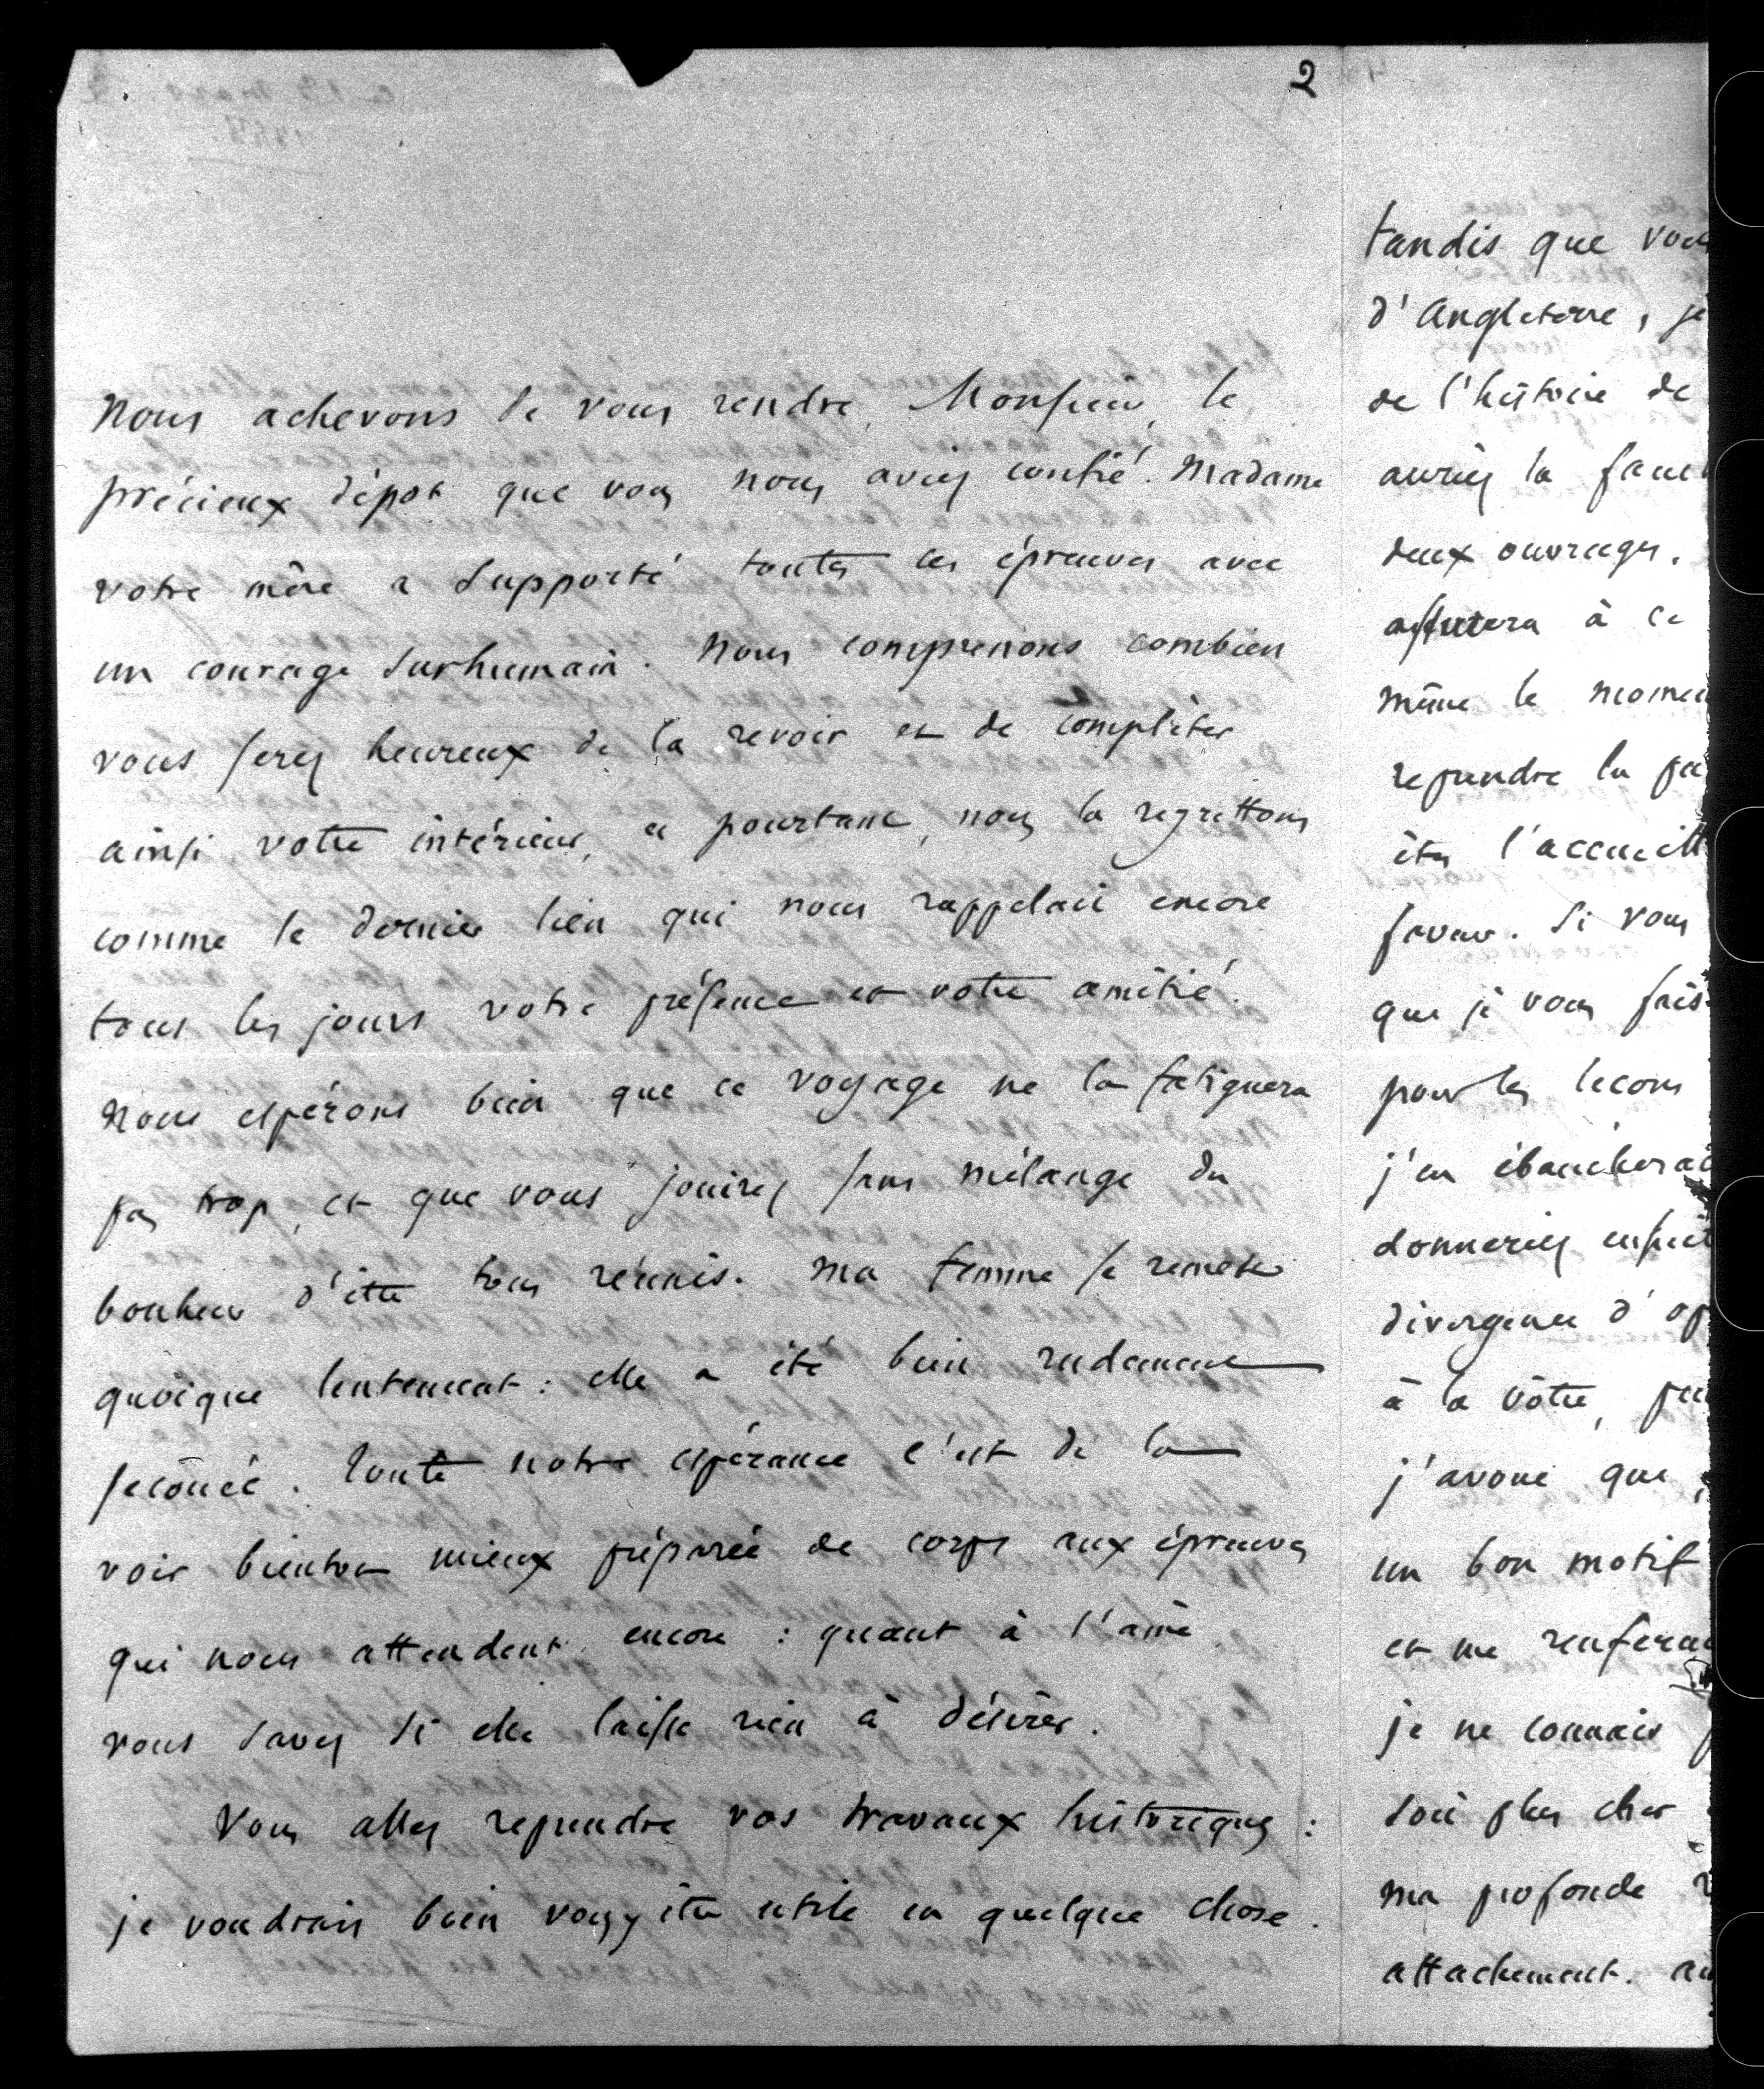 2
Nous achevons de vous rendre, Monsieur, le
précieux dépot que vous nous aviez confié. Madame
votre mère a supporté toutes les épreuves avec
un courage surhumain. Nous comprenons combien
vous serez heureux de la revoir et de compléter
ainsi votre intérieur, et pourtant, nous la regrettons
comme le dernier lien qui nous rappelait encore
tous les jours votre présence et votre amitié.
Nous espérons bien que ce voyage ne la fatiguera
pas trop, et que vous jouirez sans mélange du
bonheur d'être tous réunis. Ma femme se remet
quoique lentement : elle a été bien rudement
secouée. Toute notre espérance c'est de la
voir bientot mieux préparée de corps aux épreuves
qui nous attendent encore : quant à l'ame
vous savez si elle laisse rien à désirer.
Vous allez reprendre vos travaux historiques :
je voudrais bien vous y être utile en quelque chose.
tandis que vous
d'Angleterre, je
de l'histoire de
auriez la
deux ouvrages.
à ce
même le
reprendre la
êtes l'accueill
faveur. Si vous
que je vous fais
pour les lecons
j'en ébaucherai
donneriez
divergence d'op
à la vôtre,
j'avoue que
un bon motif
et me
je ne connais
soit plus cher
ma profonde
attachement.